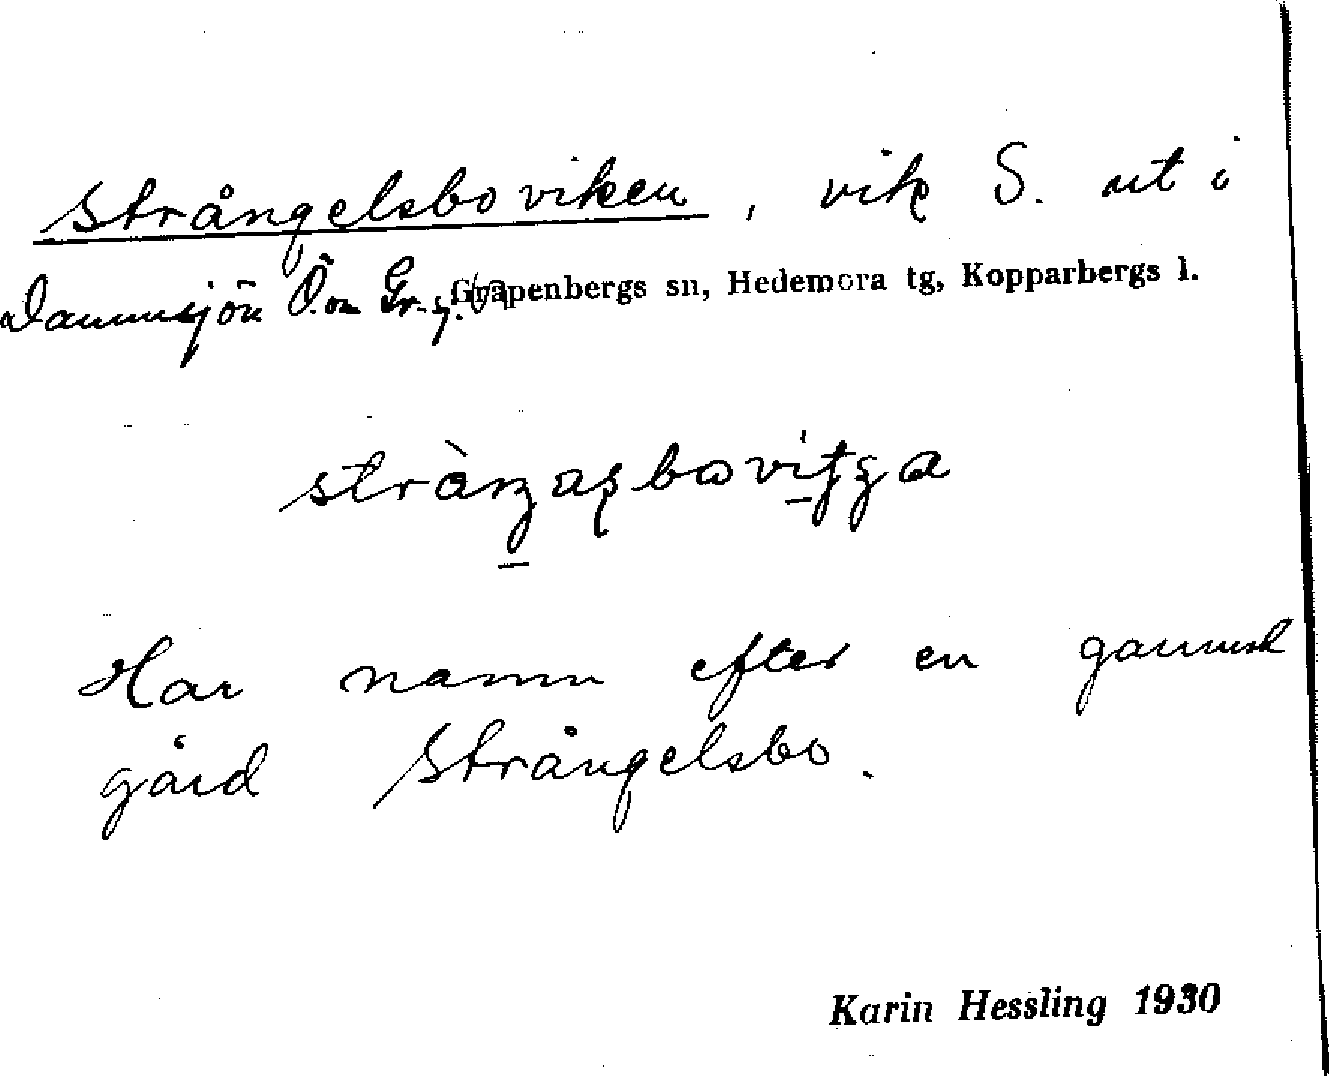 Strångelsboviken, vik S. ut i
Dammsjön Ö. om Gr.g. Garpenbergs sn, Hedemora tg, Kopparbergs l.
Har namn efter en gammal
gård Strångelsbo.
Karin Hessling 1930